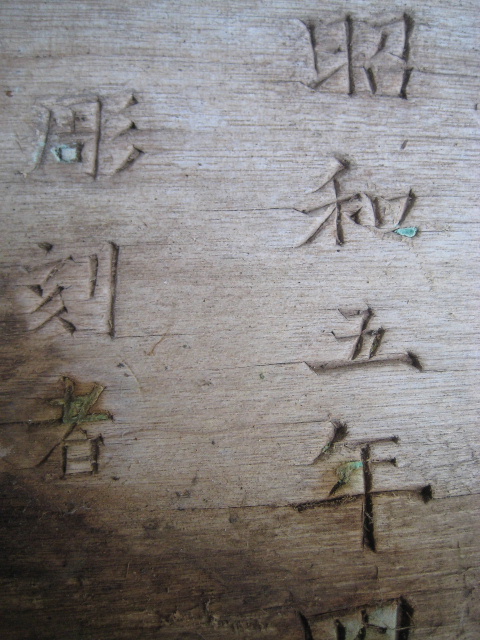 昭和五年四
彫刻者